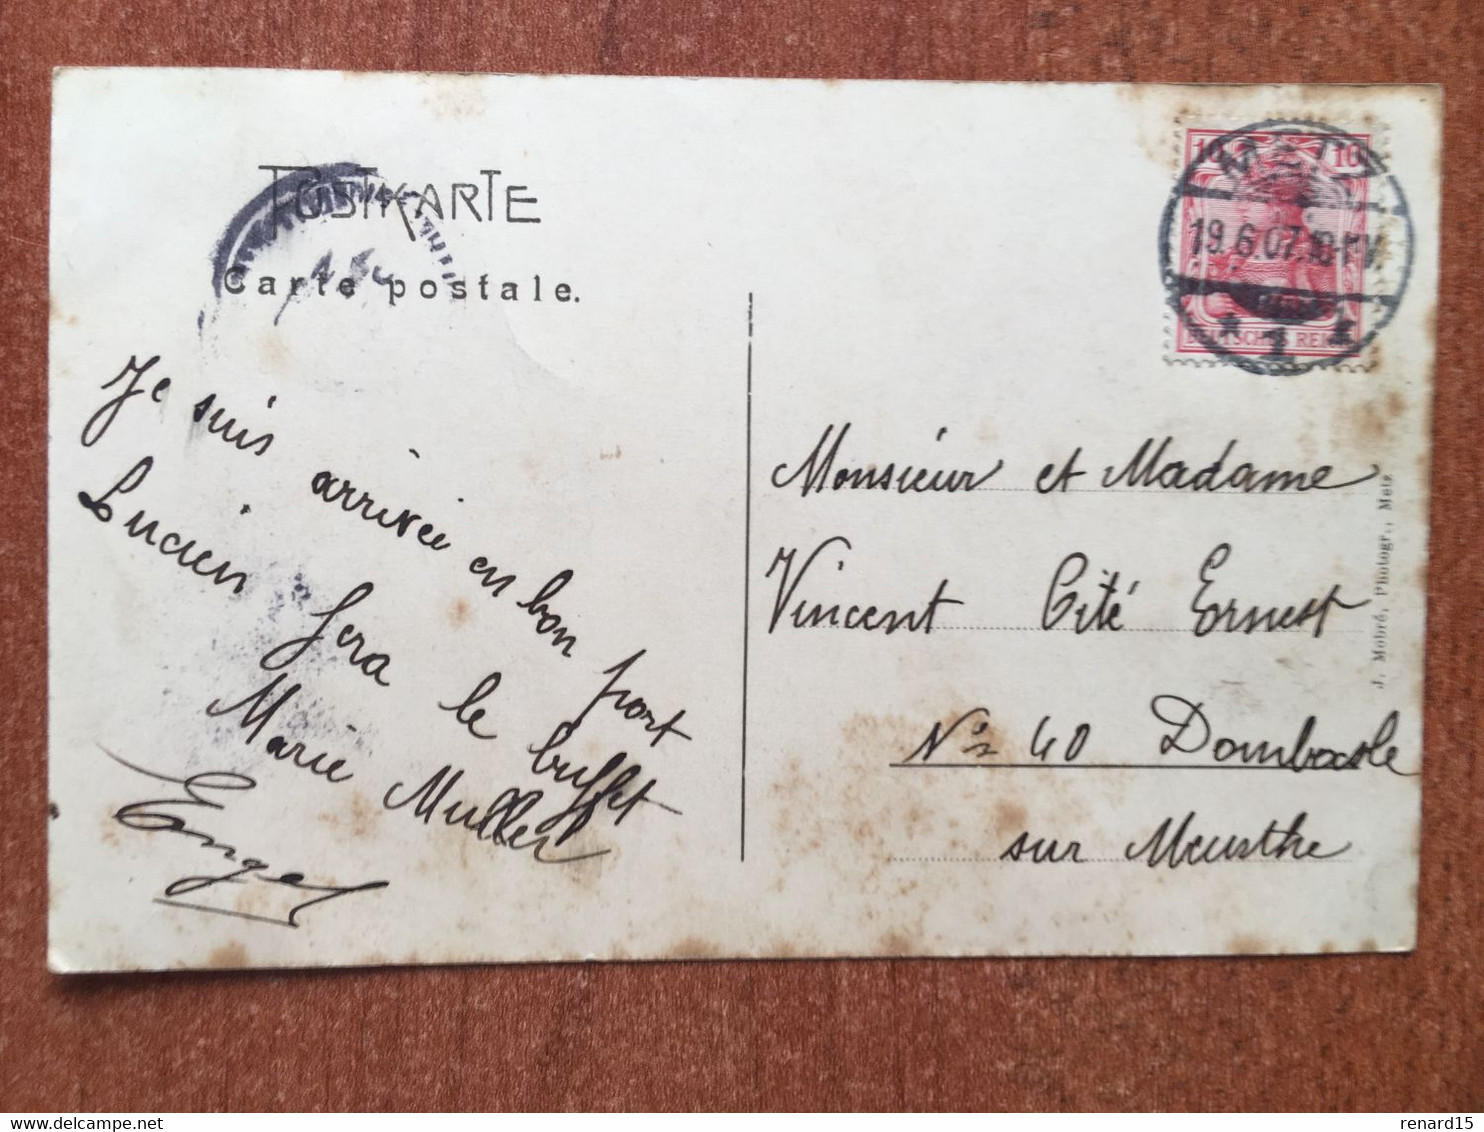 POSTKARTE
Carte postale.
Je suis arrivée en bon port
Lucien fera le buffet
Marie Muller
Engel
10 10
METZ
19.6.07.
* 1 *
DEUTSCHES REICH
Monsieur et Madame
Vincent Cité Ernest
N: 40 Dombasle
sur Meurthe
J. Mobré, Photogr., Metz
www.delcampe.net
renard15